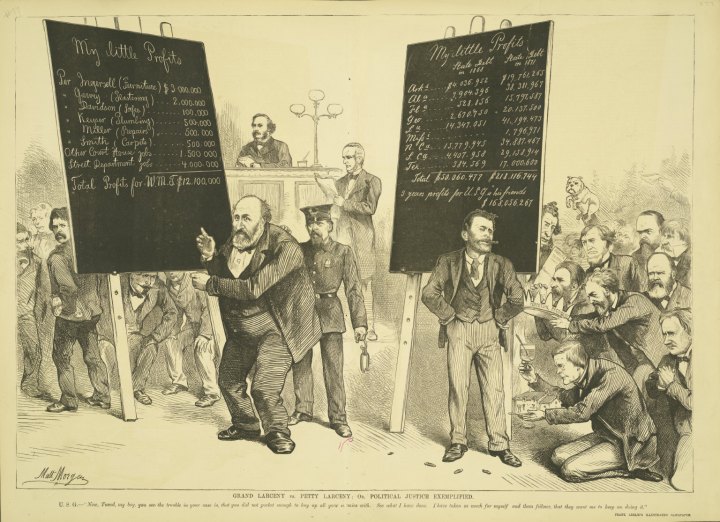 My little Profits
Per Ingersoll (Furniture) $3.000.000
" Garvey (Plastering) 2,000.000
" Davidson (Safes) 100,000
" Keyser (Plumbing) 500.000
" Miller (Repairs) 500.000
" Smith (Carpets) 500.000
Other Court House jobs 1.500.000
Street Department jobs 4.000.000
Total Profits for W.M.T $12,100,000
My little Profits
State Debt in 1860 State Debt in 1871
Ark $4.036.952 $19,761.265
Ala 7,904.396 38,311,967
Fla 528.156 15,797,587
Geo 2,670,750 20,137,500
La 14,347.051 41,194.473
Miss 1,796,971
N.Ca 15,719,945 34,887.467
S.Ca 4407.958 29,158,914
Tex 584,369 17,000,000
Total $50,060.477 $218,116.744
3 years profits for U.S.G & his friends
$168,056,267
Matt Morgan
GRAND LARCENY vs. PETTY LARCENY; Or, POLITICAL JUSTICE EXEMPLIFIED.
U. S. G.—"Now, Tweed, my boy, you see the trouble in your case is, that you did not pocket enough to buy up all your a mins with. See what I have done. I have taken so much for myself and these fellows, that they want me to keep on doing it."
FRANK LESLIE'S ILLUSTRATED NEWSPAPER.